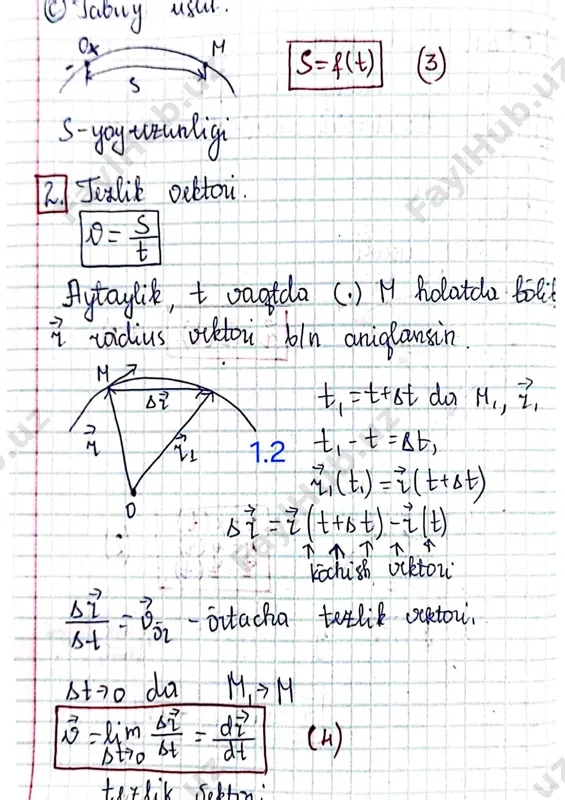 c) Tabiiy usul.
O M
S
S=f(t) (3)
S-yoy uzunligi
2. Tezlik vektori.
v = S/t
Aytaylik, t vaqtda (.) M holatda bo'lib
r⃗ radius vektori b/n aniqlansin.
M Δr⃗
r⃗ r⃗₁
O
1.2
t₁ = t+Δt da M₁, r⃗₁
t₁ - t = Δt,
r⃗₁(t₁) = r⃗(t+Δt)
Δr⃗ = r⃗(t+Δt) - r⃗(t)
↑ ↑ ↑ ↑ ↑
ko'chish vektori
Δr⃗/Δt = v⃗ o'r - o'rtacha tezlik vektori.
Δt→0 da M₁→M
v⃗ = lim Δt→0 Δr⃗/Δt = dr⃗/dt (4)
tezlik vektori
FaylHub.uz
FaylHub.uz